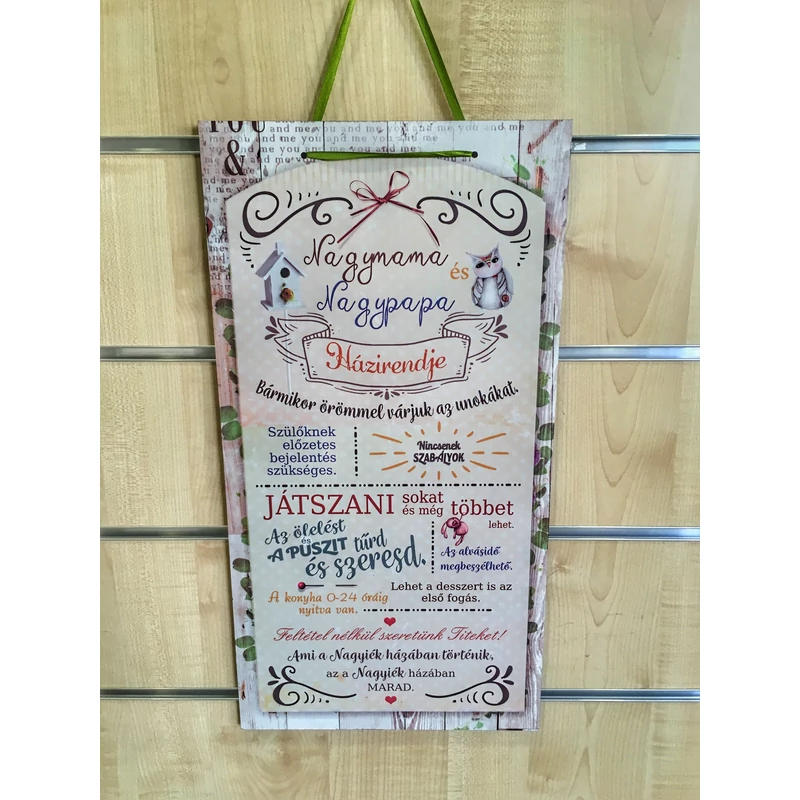 YOU
and me you and me you and me you and me
& me you and me you and me you
and me you and me you
Nagymama és
Nagypapa
Házirendje
Bármikor örömmel várjuk az unokákat.
Szülőknek
előzetes
bejelentés
szükséges.
Nincsenek
SZABÁLYOK
JÁTSZANI sokat
és még többet
lehet.
Az ölelést
és
A PUSZIT tűrd
és szeresd.
Az alvásidő
megbeszélhető.
A konyha 0-24 óráig
nyitva van.
Lehet a desszert is az
első fogás.
Feltétel nélkül szeretünk Titeket!
Ami a Nagyiék házában történik,
az a Nagyiék házában
MARAD.